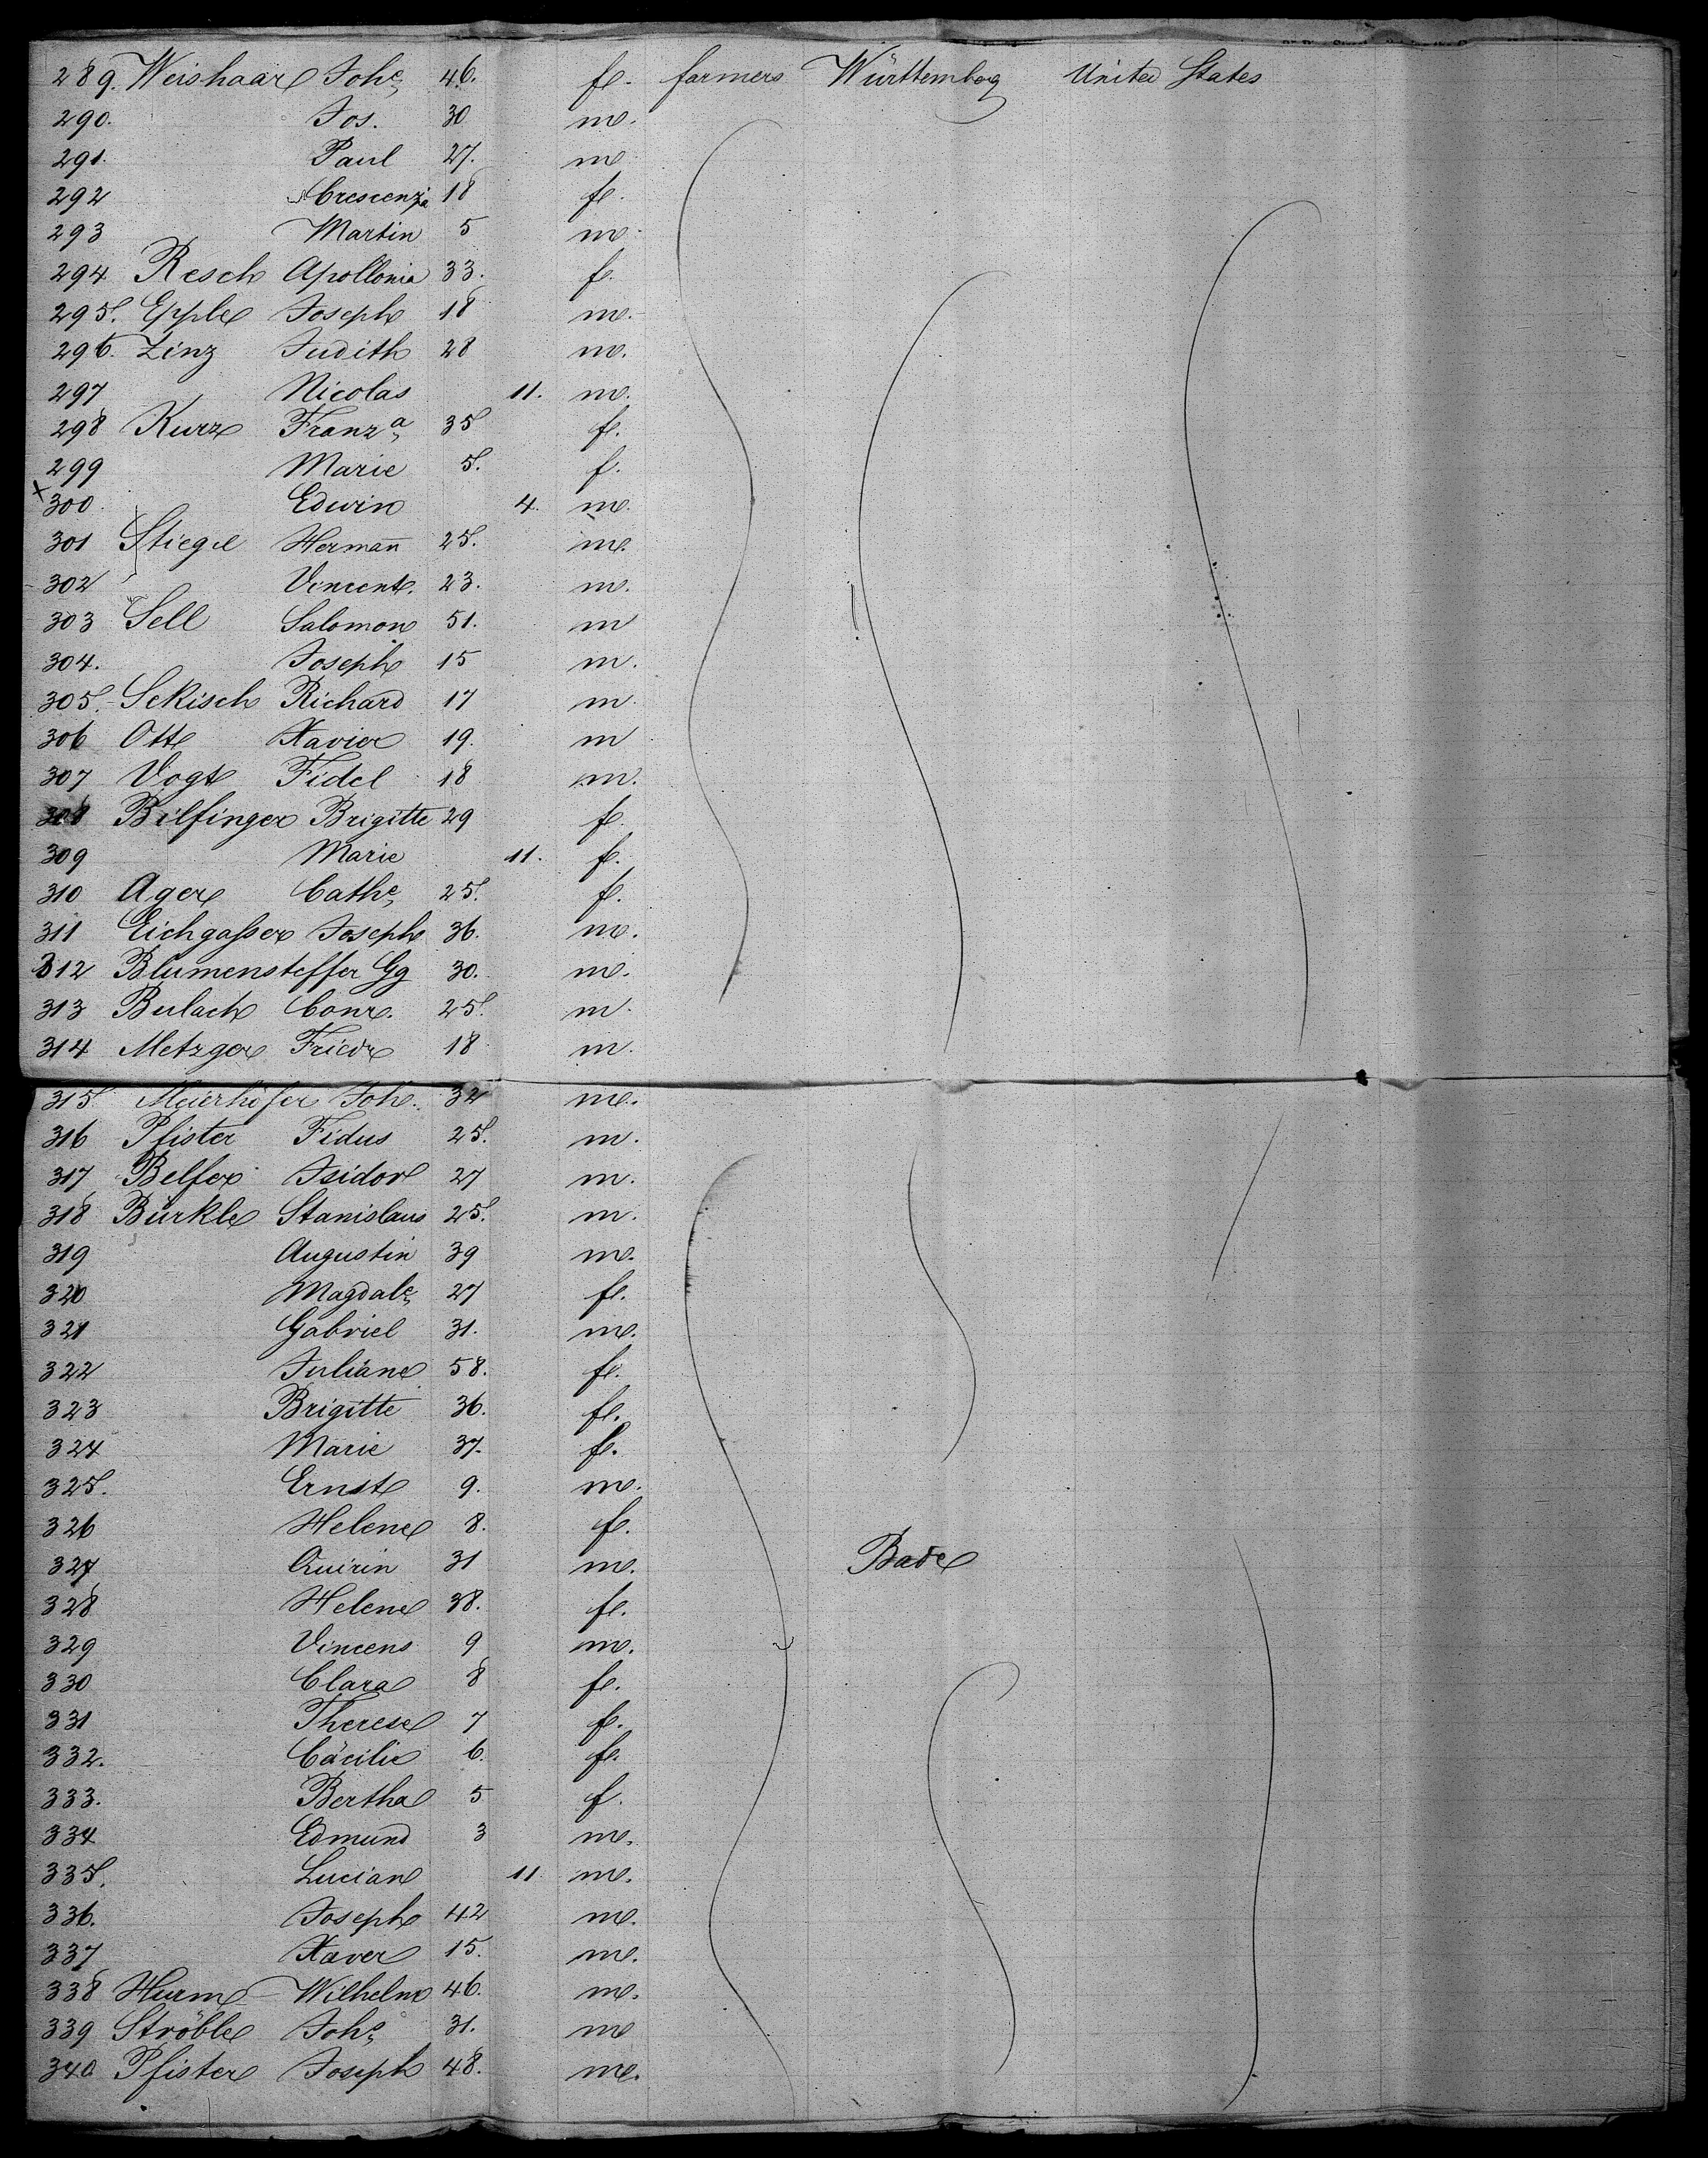 289. Weishaar Joh^e 46. fe. farmers Württemberg United States
290. Jos. 30 m.
291. Paul 27. m
292 Crescenzia 18 fe.
293 Martin 5 m.
294 Resch Apollonia 33. f.
295. Epple Joseph 18 m.
296. Zinz Judith 28 m.
297 Nicolas 11. m.
298 Kurz Franz^a 35 f.
299 Marie 5. f.
x 300. Edwin 4. m.
301 Stiegel Hermann̄ 25. m.
302 Vincent. 23. m.
303 Sell Salomon 51. m
304. Joseph 15 m.
305. Sekisch Richard 17 m.
306 Ott Xavier 19. m
307 Vogt Fidel 18 m.
308 Bilfinger Brigitte 29 f.
309 Marie 11. f.
310 Ager Cath^e 25. f.
311 Eichgaßer Joseph 36. m.
312 Blumensteffer Gg 30. m.
313 Bulach Conr. 25. m.
314 Metzger Friedr 18 m.
315 Meierhöfer Joh. 32 m.
316 Pfister Fidus 25. m.
317 Belfer Isidor 27 m.
318 Bürkle Stanislaus 25. m.
319 Augustin 39 m.
320 Magdal^e 27 fe.
321 Gabriel 31. m.
322 Juliane 58. fe.
323 Brigitte 36. fe.
324 Marie 37. fe.
325. Ernst 9. m.
326 Helene 8. f.
327 Quirin 31 m. Bade
328 Helene 38. fe.
329 Vincens 9 m.
330 Clara 8 fe.
331 Therese 7 f.
332. Cäcilie 6. fe.
333. Bertha 5 f.
334 Edmund 3 m.
335. Lucian 11 m.
336. Joseph 42 m.
337 Xaver 15. m.
338 Hurm Wilhelm 46. m.
339 Ströble Joh^s 31. m
340 Pfister Joseph 48. m.